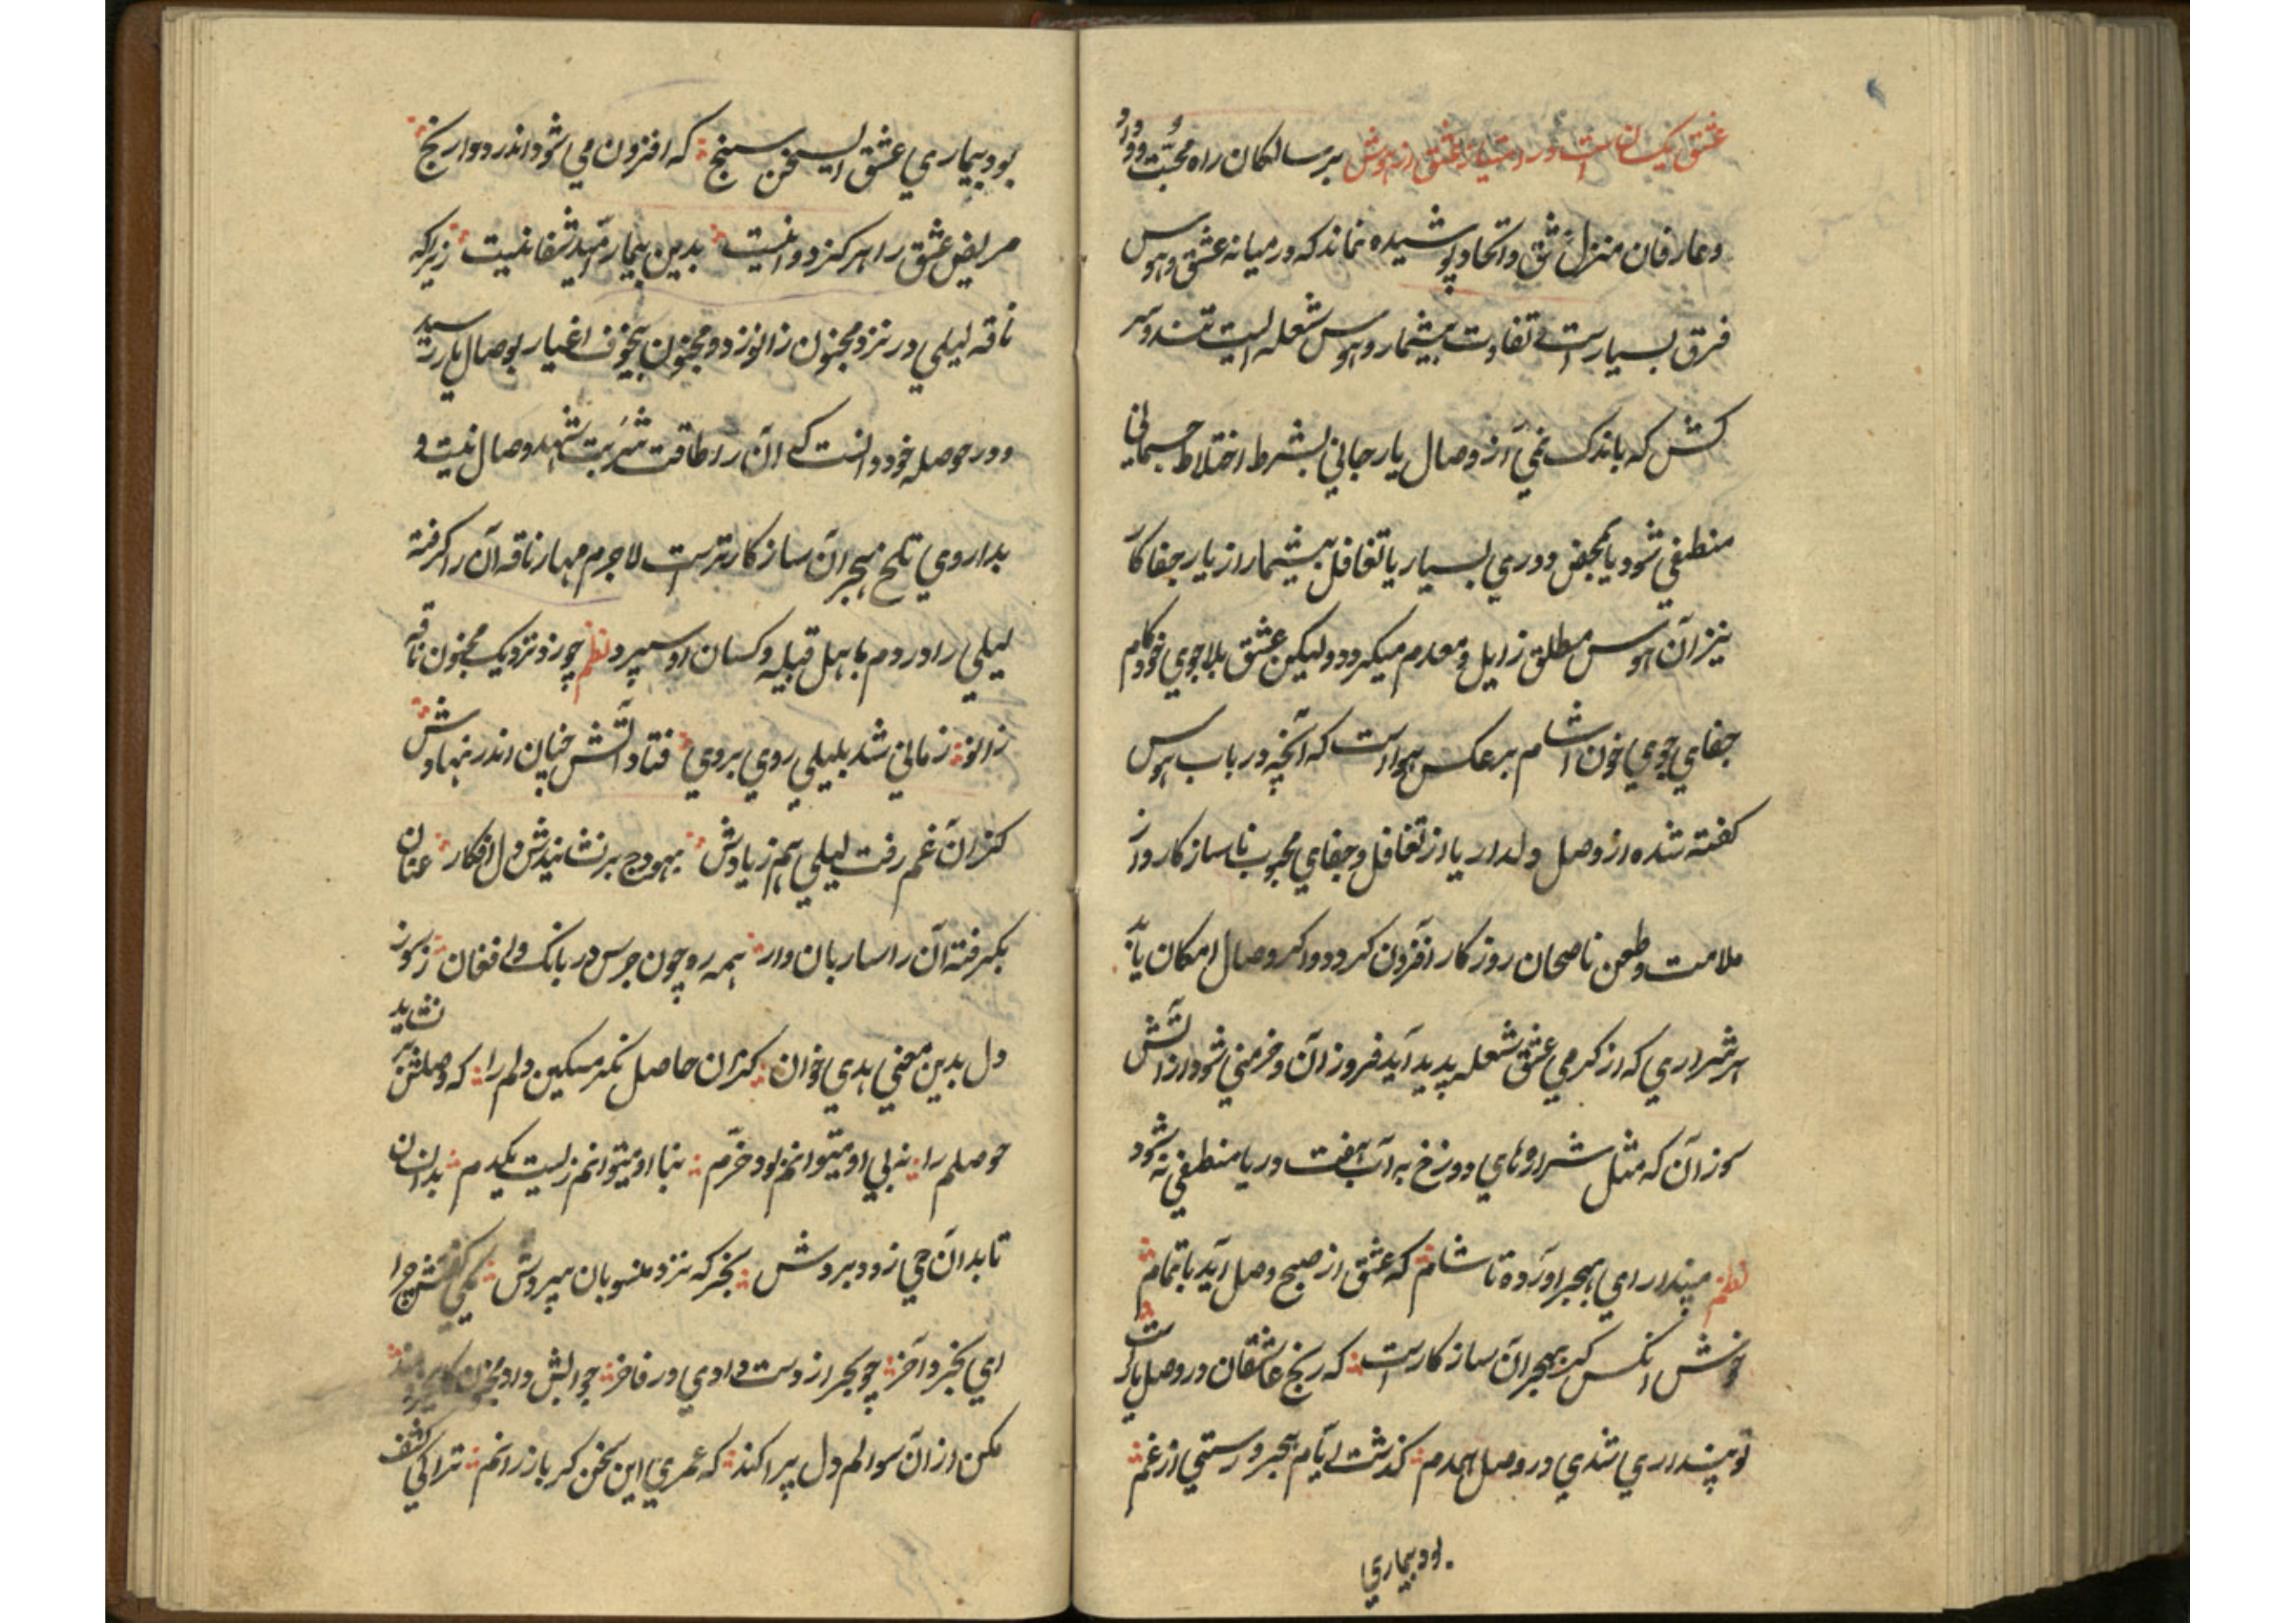 عشق یکسانست در امتیاز عشق از هوس بر سالکان راه محبت و وداد
و عارفان منزل عشق و اتحاد پوشیده نماند که در میانه عشق و هوس
فرق بسیارست و تفاوت بیشمار و هوس شعله ایست تند و سر
کش که باندک نمی از وصال یار جانی بشرط اختلاط جسمانی
منطفی شود یا بمحض دوری بسیار یا تغافل بیشمار از یار جفا کار
نیز آن هوس مطلق زایل و معدوم میکردد ولیکن عشق بلا جوی خود کام
جفای جوی خون اشام بر عکس هواست که آنچه در باب هوس
کفته شده از وصل دلدار یا از تغافل و جفای محبوب ناساز کار و از
ملامت و طعن ناصحان روز کار افزون کردد و اکر وصال امکان یابد
هر شراری که از کرمی عشق شعله پدید آید فروزان و خرمنی شود از آتش
سوزان که مثل شراره های دوزخ به آب هفت دریا منطفی نه شود
نظم مپندار ای بهجر اورده تا شام که عشق از صبح وصل آید باتمام
خوش انکس کش بهجران ساز کارست که رنج عاشقان در وصل یارست
تو پنداری شدی در وصل همدم کذشت ایام هجر و رستی از غم
بود بیماری
بود بیماری عشق ای سخن سنج که افزون می شود اندر دوا رنج
مریض عشق را هرکز دوا نیست بدین بیمار امید شفا نیست زیراکه
ناقه لیلی در نزد مجنون زانو زد و مجنون بیخوف اغیار بوصال یار رسید
و در حوصله خود دانست که آن را طاقت شربت شهد وصال نیست و
بداروی تلخ هجران ساز کارترست لاجرم مهار ناقه آن را کرفته
لیلی را در دم باهل قبیله و کسان او سپرد نظم چو زد نزدیک مجنون ناقه
زانو زمانی شد بلیلی روی بروی فتاد آتش چنان اندر نهادش
کزان غم رفت لیلی هم ز یادش بهودج بر نشاندش دل افکار عنان
بکرفته آن را ساربان وار همه ره چون جرس در بانک و افغان ز سوز
دل بدین معنی هدی خوان کزان حاصل نکر مسکین دلم را که وصلش بر نتابد
حوصلم را نه بی او میتوانم بود خرم نه با او میتوانم زیست یکدم بدانسان
تا بدان حی زود بردش بخرکه نزد منسوبان سپردش یکی کفتش چرا
ای بخرد آخر چو بحر از دست دادی در فاخر جوابش داد مجنون
مکن از آن سوالم دل پراکند که عمری این سخن کر باز رانم ترا کی کشف